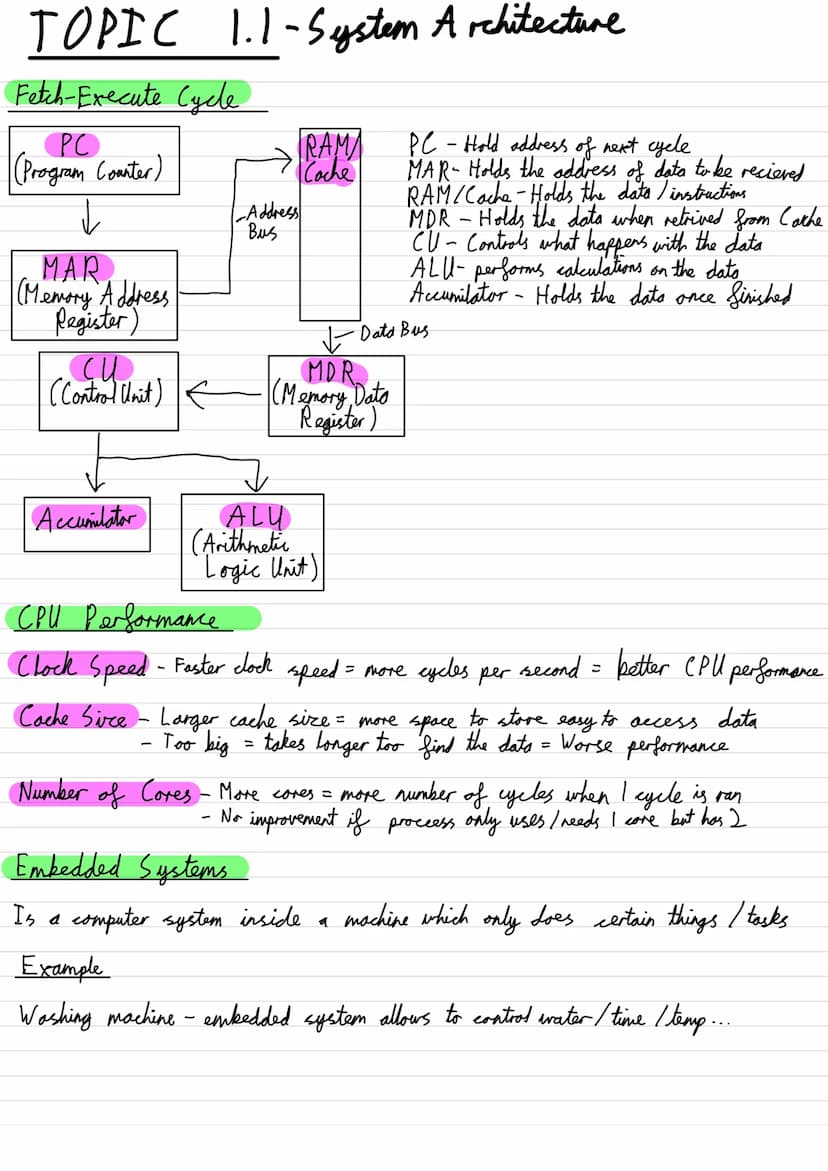 TOPIC 1.1 - System Architecture
Fetch-Execute Cycle
PC
(Program Counter)
MAR
(Memory Address
Register)
Address
Bus
RAM/
Cache
PC - Hold address of next cycle
MAR - Holds the address of data to be recieved
RAM/Cache - Holds the data/instructions
MDR - Holds the data when retrived from Cache
CU - Controls what happens with the data
ALU - performs calculations on the data
Accumilator - Holds the data once finished
Data Bus
CU
(Control Unit)
MDR
(Memory Data
Register)
Accumilator
ALU
(Arithmetic
Logic Unit)
CPU Performance
Clock Speed - Faster clock speed = more cycles per second = better CPU performance
Cache Sizce - Larger cache size = more space to store easy to access data
- Too big = takes longer too find the data = Worse performance
Number of Cores - More cores = more number of cycles when 1 cycle is ran
- No improvement if proccess only uses/needs 1 core but has 2
Embedded Systems
Is a computer system inside a machine which only does certain things/tasks
Example
Washing machine - embedded system allows to control water/time/temp...